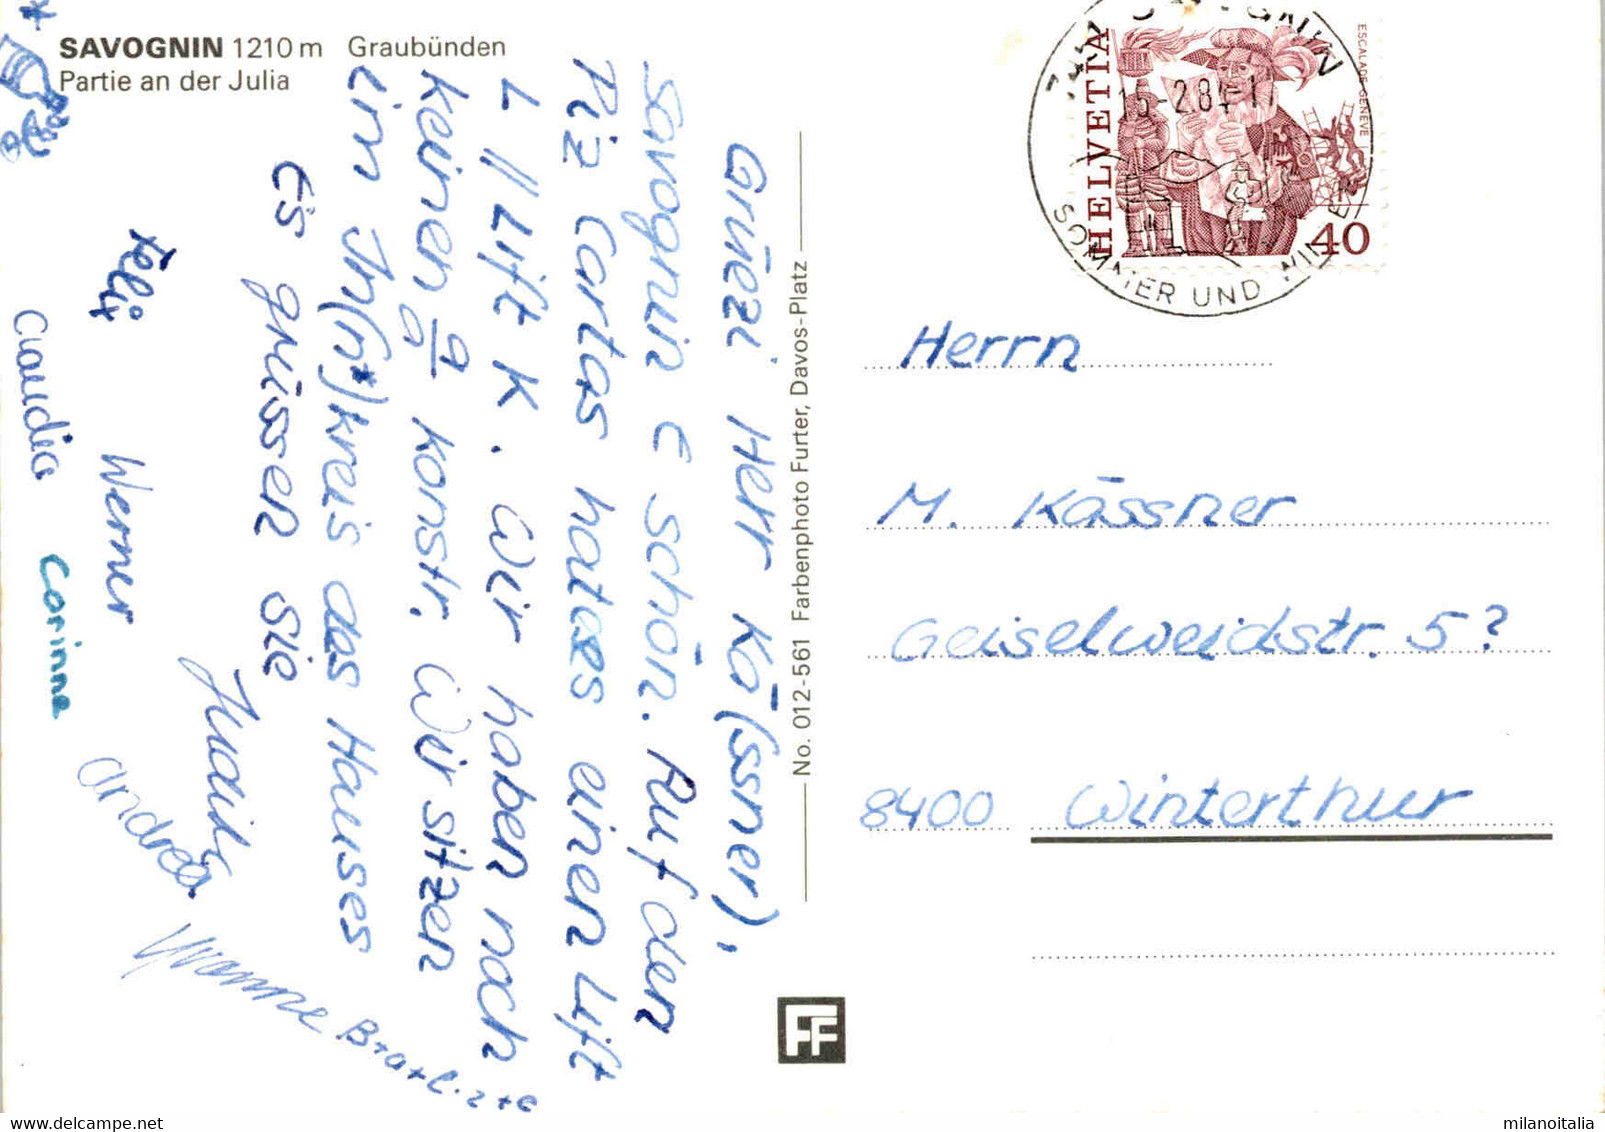 SAVOGNIN 1210 m Graubünden
Partie an der Julia
Grüezi Herr Kö(ssner),
Savognin € schön. Auf den
Piz Cartas hates einen Lift
L // Lift K. Wir haben noch
keinen a/a konstr. Wir sitzen
im In(n*)kreis des Hauses
Es grüssen Sie
Felix
Claudia
Werner
Corinne
Judith
Andrea
Yvonne
No. 012-561 Farbenphoto Furter, Davos-Platz
FF
SAVOGNIN
15-2.84-17
SOMMER UND WINTER
HELVETIA
ESCALADE GENÈVE
40
Herrn
M. Kässner
Geiselweidstr. 5?
8400 Winterthur
milanoitalia